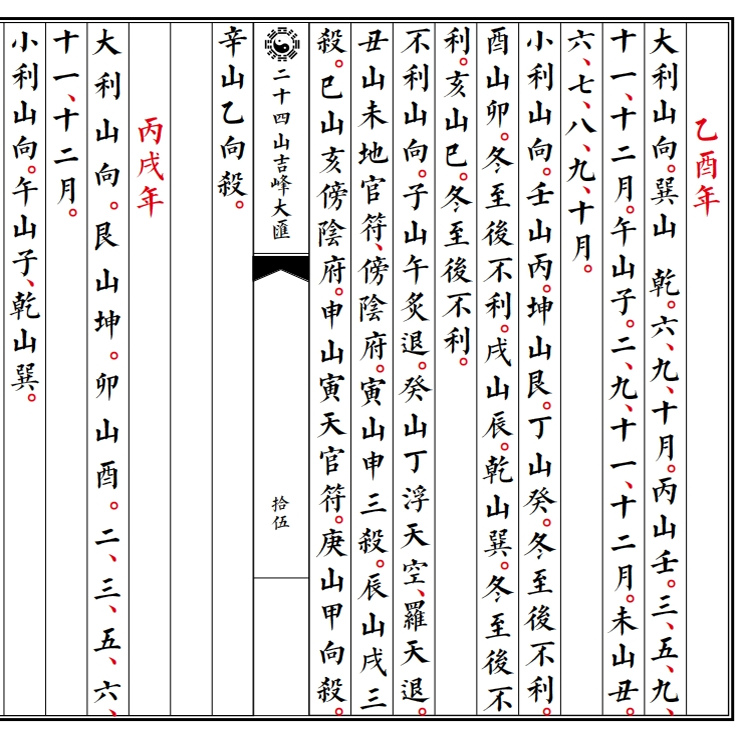 乙酉年
大利山向。巽山　乾。六、九、十月。丙山壬。三、五、九、
十一、十二月。午山子。二、九、十一、十二月。未山丑。
六、七、八、九、十月。
小利山向。壬山丙。坤山艮。丁山癸。冬至後不利。
酉山卯。冬至後不利。戌山辰。乾山巽。冬至後不
利。亥山巳。冬至後不利。
不利山向。子山午炙退。癸山丁浮天空、羅天退。
丑山未地官符、傍陰府。寅山申三殺。辰山戌三
殺。巳山亥傍陰府。申山寅天官符。庚山甲向殺。
二十四山吉峰大匯
拾伍
辛山乙向殺。
丙戌年
大利山向。艮山坤。卯山酉。二、三、五、六、
十一、十二月。
小利山向。午山子、乾山巽。